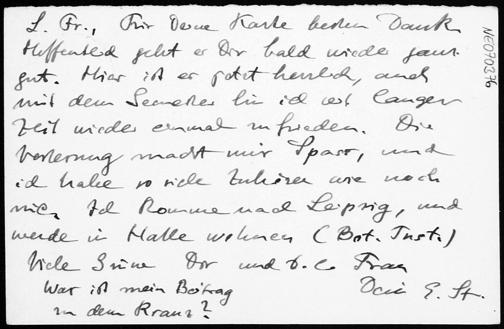 L. Fr., Für Deine Karte besten Dank
Hoffentlich geht es Dir bald wieder ganz
gut. Hier ist es jetzt herrlich, auch
mit dem Semester bin ich seit langer
Zeit wieder einmal zufrieden. Die
Vorlesung macht mir Spass, und
ich habe so viele Zuhörer wie noch
nie. Ich komme nach Leipzig, und
werde in Halle wohnen (Bot. Inst.)
Viele Grüsse Dir und d. l. Frau
Dein E. St.
War ist mein Beitrag
zu dem Kranz?
NE070376